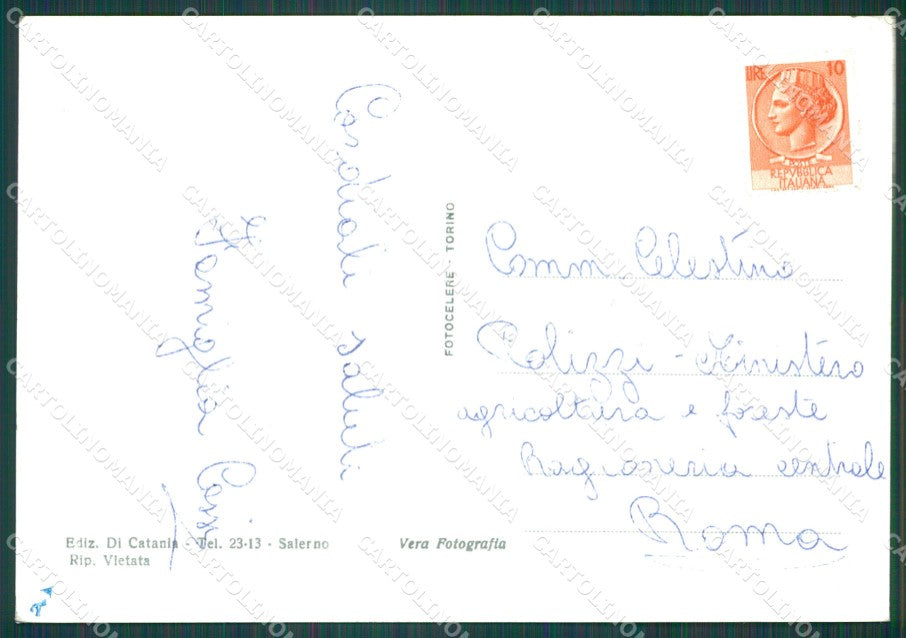 LIRE 10
POSTE
REPVBBLICA
ITALIANA
Cordiali saluti
Famiglia
FOTOCELERE - TORINO
Comm Celestino
Polizzi - Ministero
agricoltura e foreste
Ragioneria centrale
Roma
Ediz. Di Catania - Tel. 23-13 - Salerno
Rip. Vietata
Vera Fotografia
CARTOLINOMANIA